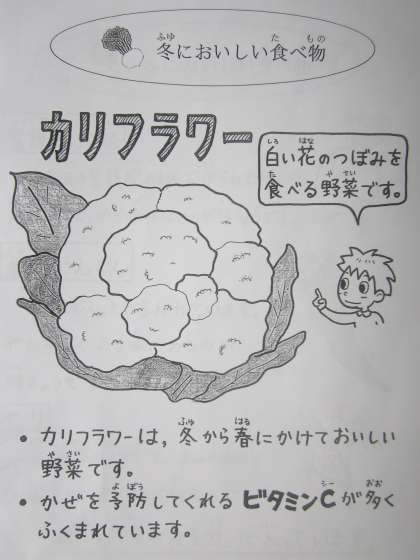 冬においしい食べ物
カリフラワー
白い花のつぼみを
食べる野菜です。
・カリフラワーは，冬から春にかけておいしい
野菜です。
・かぜを予防してくれるビタミンCが多く
ふくまれています。